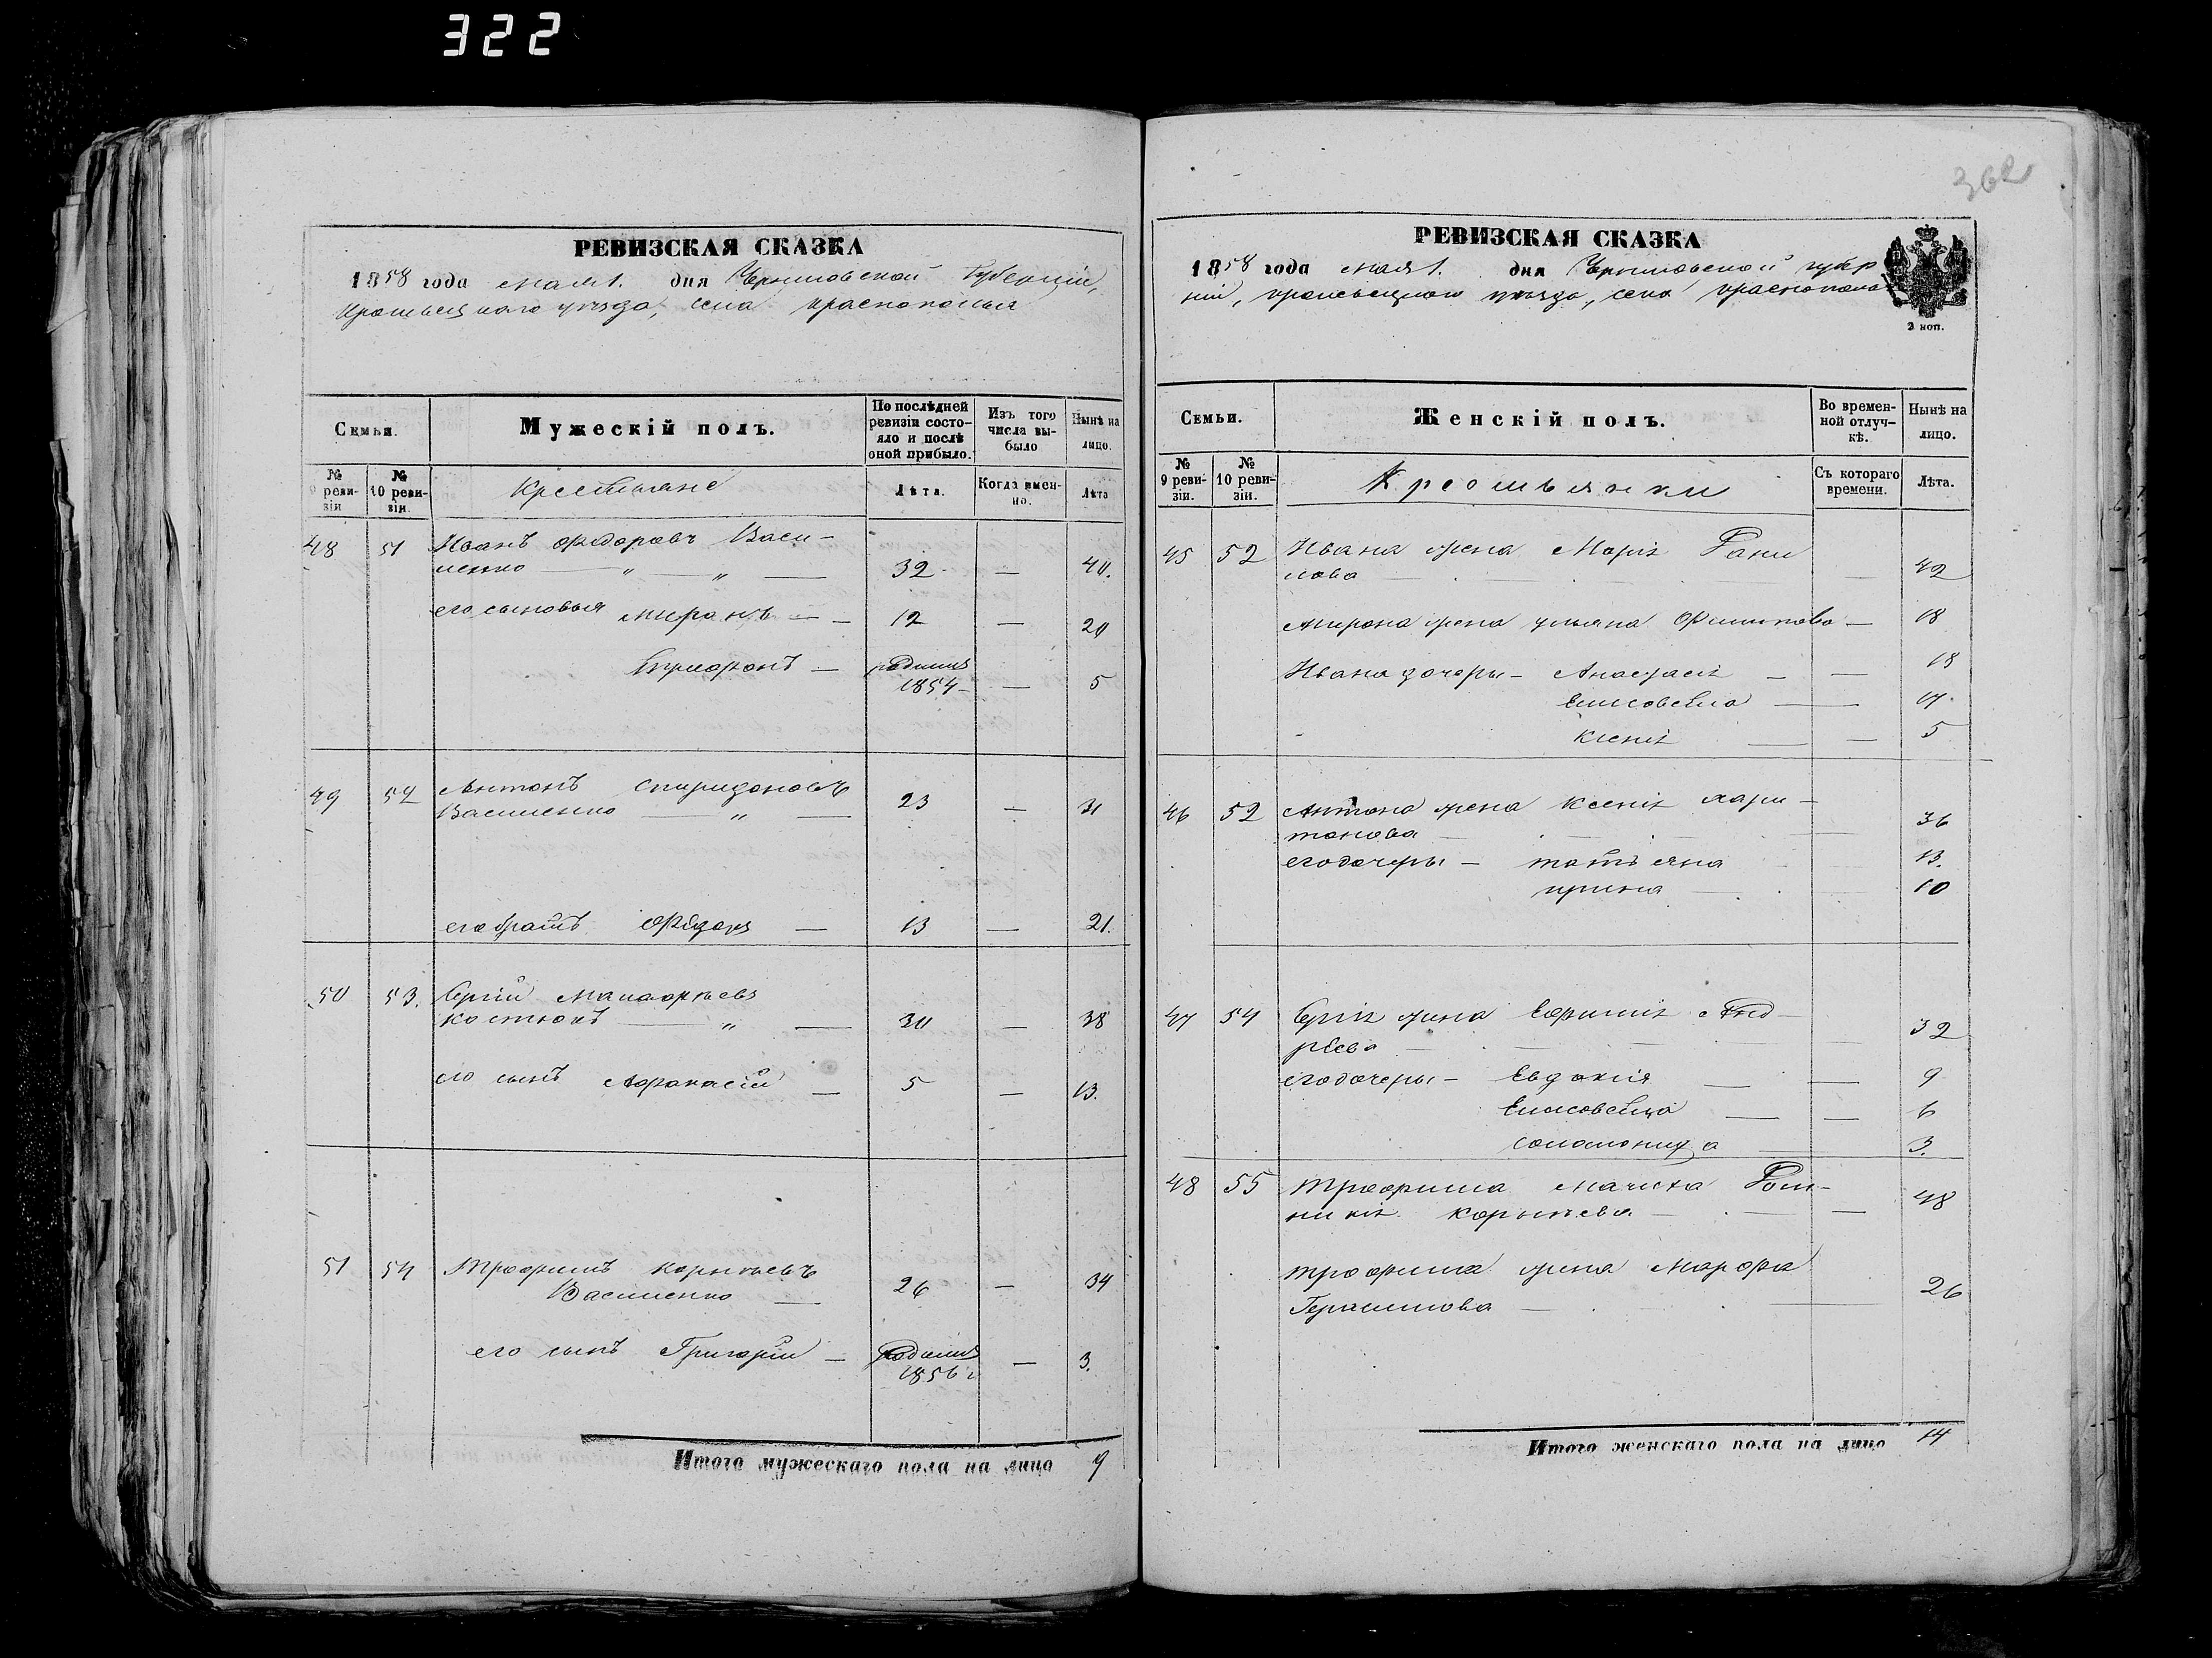 322
362
РЕВИЗСКАЯ СКАЗКА
1858 года мая 1. дня Черниговской Губерніи,
Кролевецкаго уѣзда, села Краснополья
Семьи.
Мужескій полъ.
По послѣдней ревизіи состояло и послѣ оной прибыло.
Изъ того числа выбыло
Нынѣ на лицо.
№ 9 ревизіи
№ 10 ревизіи.
Крестьяне
Лѣта.
Когда именно.
Лѣта
48 51 Иванъ Федоровъ Васи-
ленко — " — " — 32 — 40.
его сыновья Миронъ — 12 — 20
Трифонъ — родился
1854 — 5
49 52 Антонъ Спиридоновъ
Василенко " — 23 — 31
его братъ Федоръ — 13 — 21.
50 53. Сергій
Костюкъ — " — 30 — 38
его сынъ Афанасій — 5 — 13.
51 54 Трофимъ Корнѣевъ
Василенко — 26 — 34
его сынъ Григорій — родился — 3.
1856 г
Итого мужескаго пола на лицо 9
РЕВИЗСКАЯ СКАЗКА
1858 года мая 1. дня Черниговской губер
ніи, Кролевецкаго уѣзда, села Краснополья
2 коп.
Семьи.
Женскій полъ.
Во временной отлучкѣ.
Нынѣ на лицо.
№ 9 ревизіи.
№ 10 ревизіи.
Крестьянки
Съ котораго времени.
Лѣта.
45 52 Ивана жена Марія Дани
лова — — 42
Мирона жена Ульяна Филипова — 18
Ивана дочеры — Анастасія — — 18
Елисовета — — 17.
Ксенія — — 5
46 52 Антона жена Ксенія Хари-
тонова — 36
его дочеры — Татьяна 13.
Ирина — 10
47 54 Сергія жена Ефимія Анд-
рѣева — — 32
его дочеры — Евдокія — — 9
Елисовета — — 6
Соломонида — 3.
48 55 Трофима мачиха Дом-
никія Корнѣева — — 48
Трофима жена Марфа
Герасимова — 26
Итого женскаго пола на лицо 14